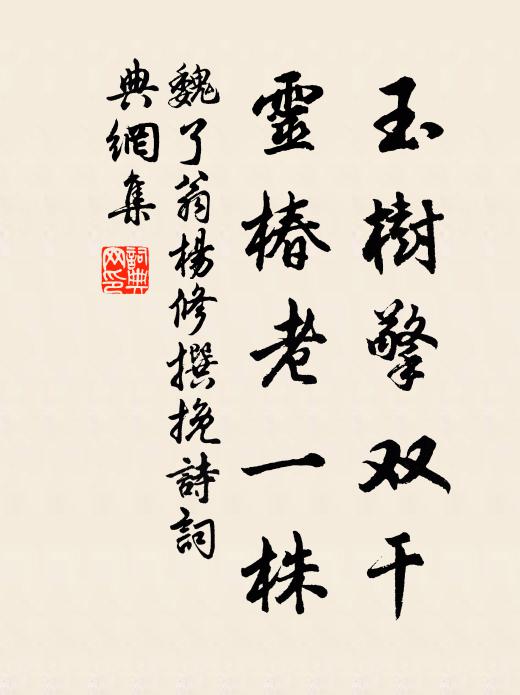 玉樹擎双干
靈椿老一株
魏了翁楊修撰挽詩詞
典網集
詞典
网印